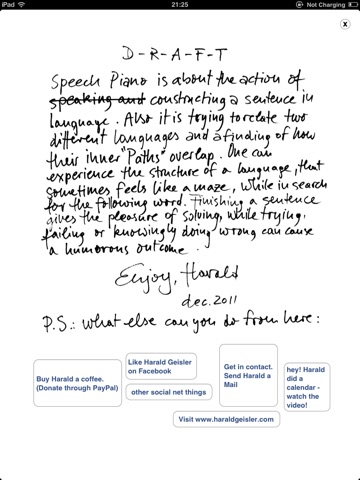 iPad
21:25
Not Charging
x
D-R-A-F-T
Speech Piano is about the action of
speaking and constructing a sentence in
language. Also it is trying to relate two
different languages and a finding of how
their inner "Paths" overlap. One can
experience the structure of a language, that
sometimes feels like a maze, while in search
for the following word. Finishing a sentence
gives the pleasure of solving, while trying,
failing or knowingly doing wrong can cause
a humorous outcome.
Enjoy, Harald
dec. 2011
P.S.: what else can you do from here:
Buy Harald a coffee.
(Donate through PayPal)
Like Harald Geisler
on Facebook
other social net things
Get in contact.
Send Harald a
Mail
hey! Harald
did a
calendar -
watch the
video!
Visit www.haraldgeisler.com